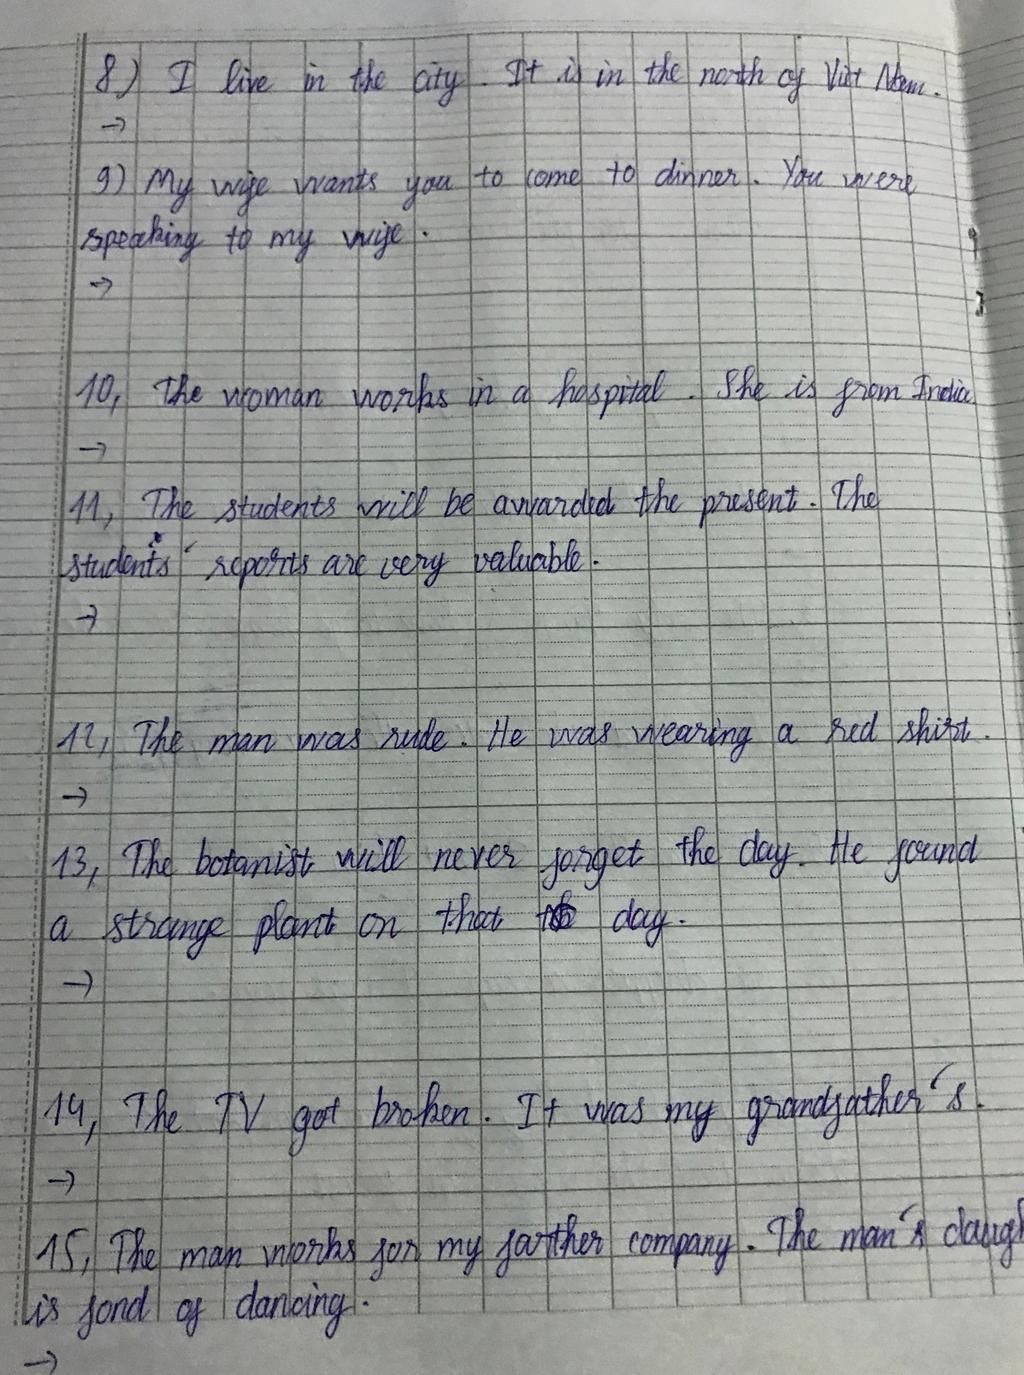 8) I live in the city. It is in the north of Viet Nam.
→
9) My wife wants you to come to dinner. You were
speaking to my wife.
→
10, The woman works in a hospital. She is from India
→
11, The students will be awarded the present. The
students' reports are very valuable.
→
12, The man was rude. He was wearing a red shirt.
→
13, The botanist will never forget the day. He found
a strange plant on that day.
→
14, The TV got broken. It was my grandfather's.
→
15, The man works for my farther company. The man's daugh
is fond of dancing.
→